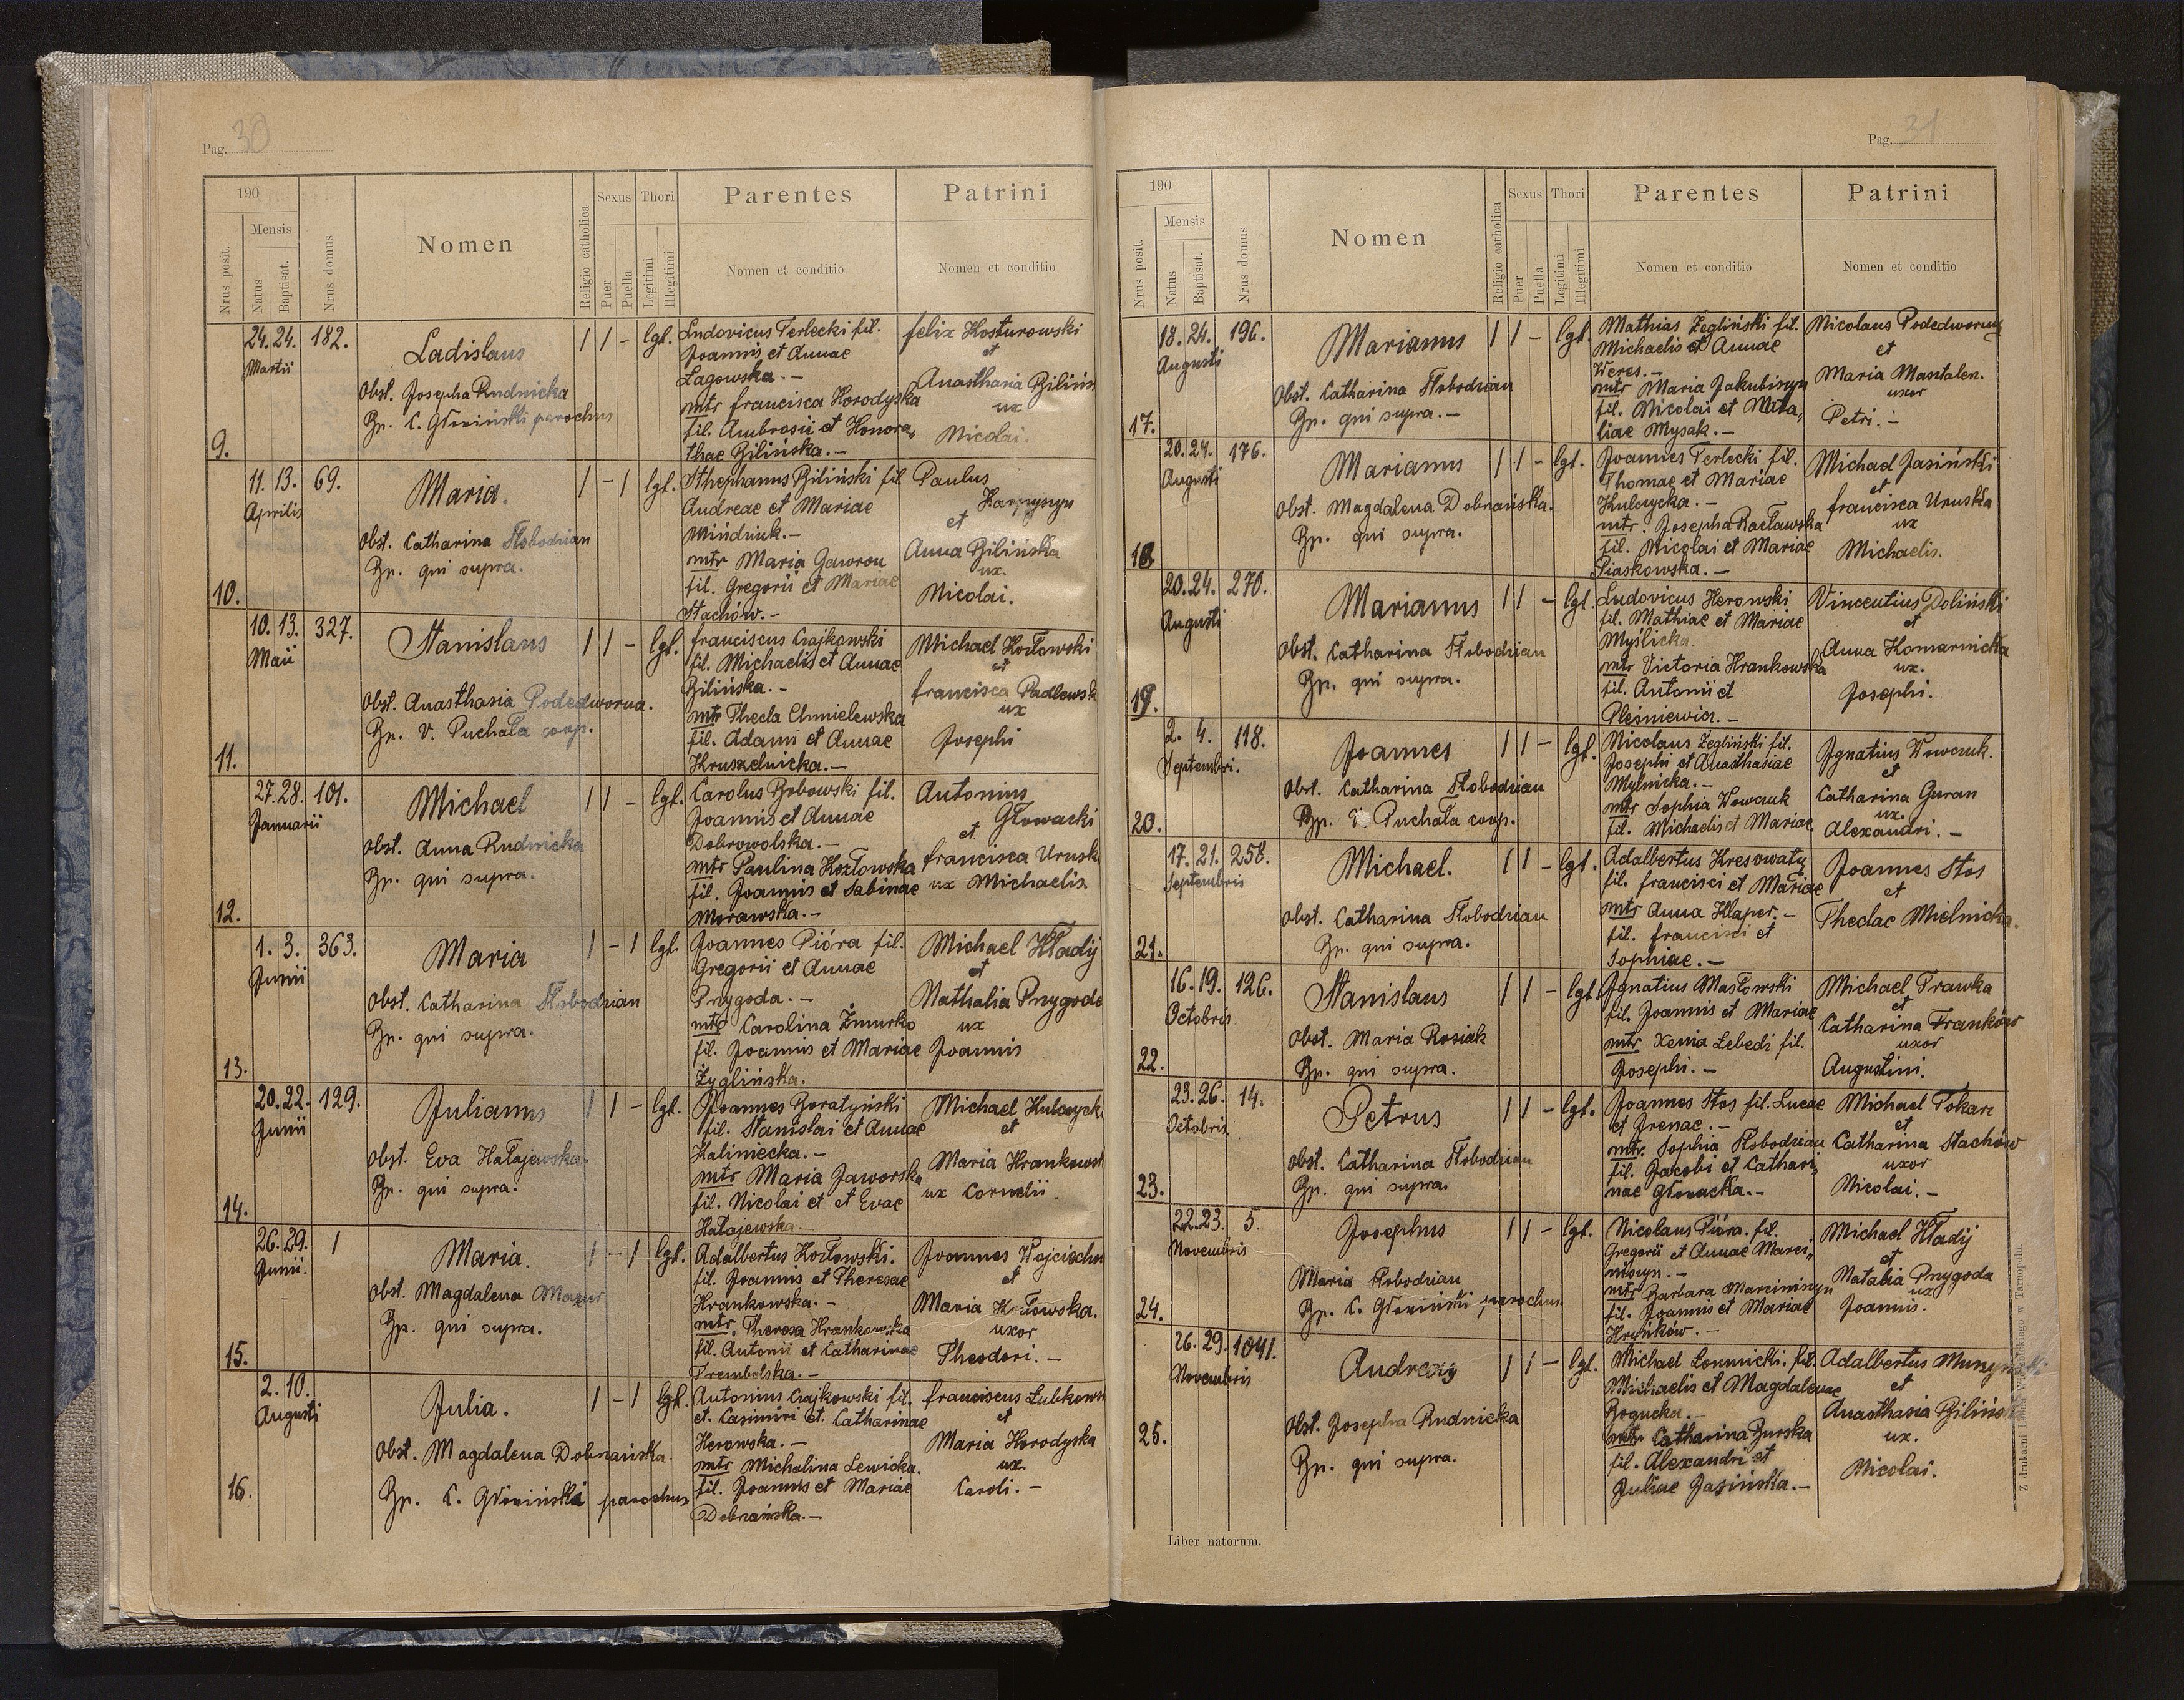 Pag. 30
190
Nrus posit.
Mensis
Natus
Baptisat.
Nrus domus
Nomen
Religio catholica
Sexus
Puer
Puella
Thori
Legitimi
Illegitimi
Parentes
Nomen et conditio
Patrini
Nomen et conditio
9.
24. 24. 182.
Martii
Ladislaus
Obst. Josepha Rudnicka
Bp. C. Głoziński parochus
1 1 - lgt.
Ludovicus Terlecki fil.
Joannis et Annae
Łagowska. -
mtr Francisca Horodyska
fil. Ambrosii et Honora„
thae Bilińska. -
Felix Kosturowski
et
Anasthasia Bilińs
ux
Nicolai.
10.
11. 13. 69.
Aprilis
Maria.
Obst. Catharina Słobodzian
Bp. qui supra.
1 - 1 lgt.
Sthephanus Biliński fil
Andreae et Mariae
Mińdziuk. -
mtr Maria Gawron
fil. Gregorii et Mariae
Stachów. -
Paulus
Karpyszyn
et
Anna Bilińska
ux.
Nicolai.
11.
10. 13. 327.
Maii
Stanislaus
Obst. Anasthasia Podedworna.
Bp. V. Puchała coop.
1 1 - lgt.
Franciscus Czajkowski
fil. Michaelis et Annae
Bilińska. -
mtr Thecla Chmielewska
fil. Adami et Annae
Kruszelnicka. -
Michael Kozłowski
et
Francisca Padlewsk
ux
Josephi
12.
27. 28. 101.
Januarii
Michael
Obst. Anna Rudnicka
Bp. qui supra.
1 1 - lgt.
Carolus Bobowski fil.
Joannis et Annae
Dobrowolska. -
mtr Paulina Kozłowska
fil. Joannis et Sabinae
Morawska. -
Antonius
Głowacki
et
Francisca Urusk
ux Michaelis.
13.
1. 3. 363.
Junii
Maria
Obst. Catharina Słobodzian
Bp. qui supra.
1 - 1 lgt.
Joannes Pióra fil.
Gregorii et Annae
Przygoda. -
mtr Carolina Żmurko
fil. Joannis et Mariae
Żyglińska.
Michael Hładij
et
Nathalia Przygoda
ux
Joannis
14.
20. 22. 129.
Junii
Julianus
Obst. Eva Hałajewska.
Bp. qui supra.
1 1 - lgt.
Joannes Boratyński
fil. Stanislai et Annae
Kaliniecka. -
mtr Maria Jaworska
fil. Nicolai et et Evae
Hałajewska. -
Michael Kulczyck
et
Maria Hrankowsk
ux Cornelii.
15.
26. 29. 1
Junii.
Maria.
Obst. Magdalena Mazur
Bp. qui supra.
1 - 1 lgt.
Adalbertus Kozłowski.
fil. Joannis et Theresae
Hrankowska. -
mtr. Theresa Hrankowska
fil. Antonii et Catharinae
Trembelska. -
Joannes Wojciechu
et
Maria Kozłowska.
uxor
Theodori. -
16.
2. 10.
Augusti
Julia.
Obst. Magdalena Dobrzańska.
Bp. C. Głoziński parochus
1 - 1 lgt.
Antonius Czajkowski fil.
et. Casimiri et. Catharinae
Herowska. -
mtr Michalina Lewicka.
fil. Joannis et Mariae
Dobrzańska. -
Franciscus Łubkows
et
Maria Horodyska
ux.
Caroli. -
Pag. 31
190
Nrus posit.
Mensis
Natus
Baptisat.
Nrus domus
Nomen
Religio catholica
Sexus
Puer
Puella
Thori
Legitimi
Illegitimi
Parentes
Nomen et conditio
Patrini
Nomen et conditio
17.
18. 24. 196.
Augusti
Marianus
Obst. Catharina Słobodzian
Bp. qui supra. -
1 1 - lgt.
Mathias Żegliński fil.
Michaelis et Annae
Weres. -
mtr Maria Jakubiszyn
fil. Nicolai et Nata„
liae Mysak. -
Nicolaus Podedworny
et
Maria Masztalerz.
uxor
Petri. -
18
20. 24. 176.
Augusti
Marianus
Obst. Magdalena Dobrzańska.
Bp. qui supra.
1 1 - lgt.
Joannes Terlecki fil.
Thomae et Mariae
Kulczycka. -
mtr Josepha Racławska
fil. Nicolai et Mariae
Piaskowska. -
Michael Jasiński
et
Francisca Uruska
ux
Michaelis.
19.
20. 24. 270.
Augusti
Marianus
Obst. Catharina Słobodzian
Bp. qui supra.
1 1 - lgt.
Ludovicus Herowski
fil. Mathiae et Mariae
Myślicka.
mtr Victoria Hrankowska
fil. Antonii et
Pleśniewicz. -
Vincentius Doliński
et
Anna Komarnicka
ux.
Josephi.
20.
2. 4. 118.
Septembri.
Joannes
Obst. Catharina Słobodzian
Bp. Puchała coop.
1 1 - lgt.
Nicolaus Żegliński fil.
Josephi et Anasthasiae
Mylnicka. -
mtr Sophia Wowczuk
fil. Michaelis et Mariae
Ignatius Wowczuk.
et
Catharina Guran
ux.
Alexandri. -
21.
17. 21. 258.
Septembris
Michael.
Obst. Catharina Słobodzian
Bp. qui supra.
1 1 - lgt.
Adalbertus Kresowaty
fil. Francisci et Mariae
mtr Anna Klaper. -
fil. Francisci et
Sophiae. -
Joannes Stos
et
Theclae Mielnicka.
22.
16. 19. 126.
Octobris
Stanislaus
Obst. Maria Rosiak
Bp. qui supra.
1 1 - lgt.
Ignatius Masłowski
fil. Joannis et Mariae
mtr Xenia Lebedi fil.
Josephi. -
Michael Trawka
et
Catharina Franków
uxor
Augustini.
23.
23. 26. 14.
Octobris
Petrus
Obst. Catharina Słobodzian
Bp. qui supra.
1 1 - lgt.
Joannes Stos fil. Lucae
et Irenae. -
mtr. Sophia Słobodzian
fil. Jacobi et Cathari„
nae Głowacka. -
Michael Tokarz
et
Catharina Stachów
uxor
Nicolai. -
24.
22. 23. 5.
Novembris
Josephus
Maria Słobodzian
Bp. C. Głoziński parochus
1 1 - lgt.
Nicolaus Pióra. fil.
Gregorii et Annae Marci„
niszyn. -
mtr Barbara Marciniszyn
fil. Joannis et Mariae
Hryńków. -
Michael Hładij
et
Natalia Przygoda
ux
Joannis.
25.
26. 29. 1041.
Novembris
Andreas
Obst. Josepha Rudnicka
Bp. qui supra.
1 1 - lgt.
Michael Łomnicki. fil.
Michaelis et Magdalenae
Bogucka. -
mtr Catharina Burska
fil. Alexandri et
Juliae Jasińska. -
Adalbertus Muszyński
et
Anasthasia Bilińs
ux.
Nicolai.
Liber natorum.
Z drukarni w Tarnopolu.